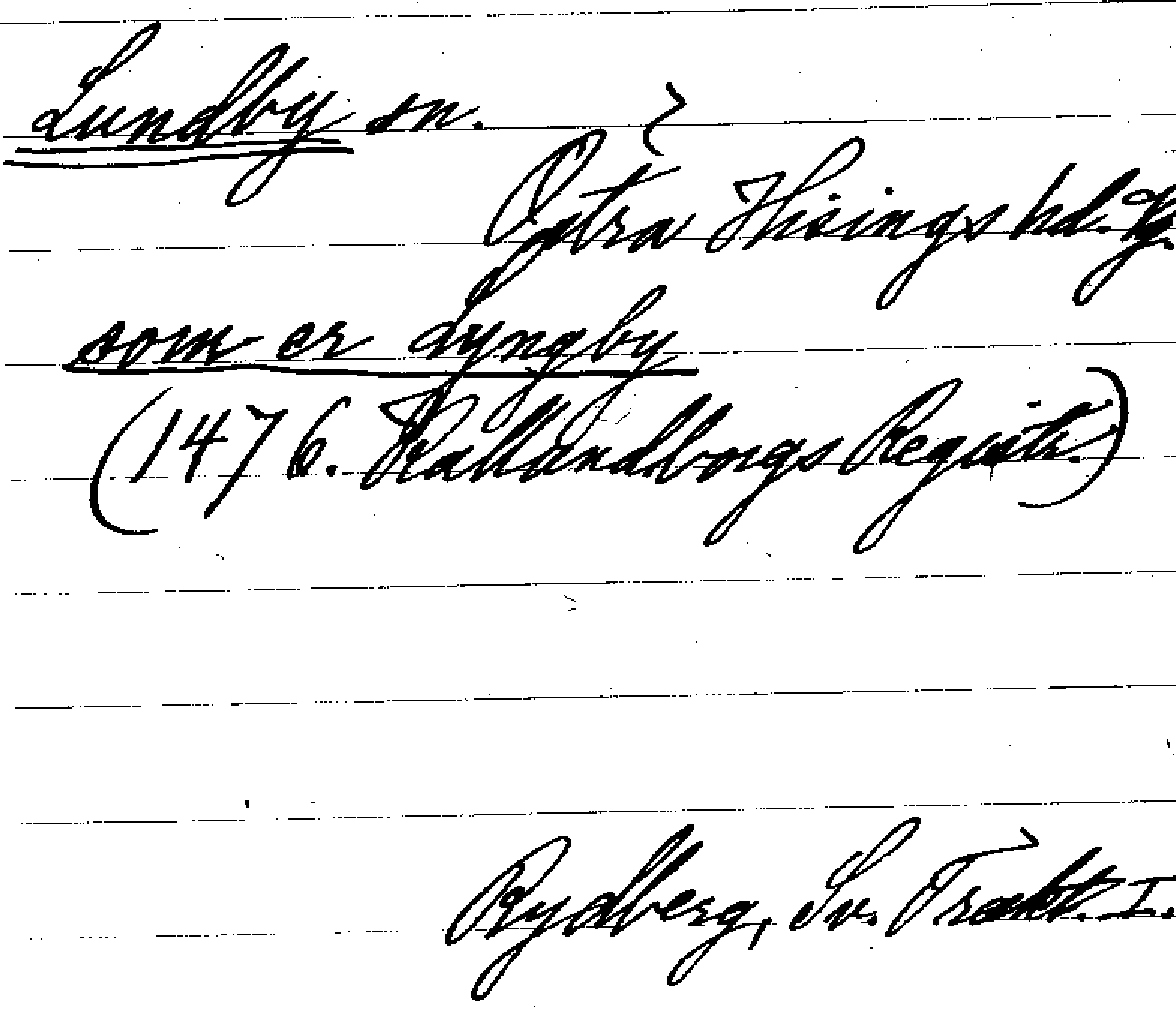 Lundby sn.
Östra Hisings hd. Bg.
som er Lyngby
(1476. Kallundborgs Registr.)
Rydberg, Sv. Trakt. I.